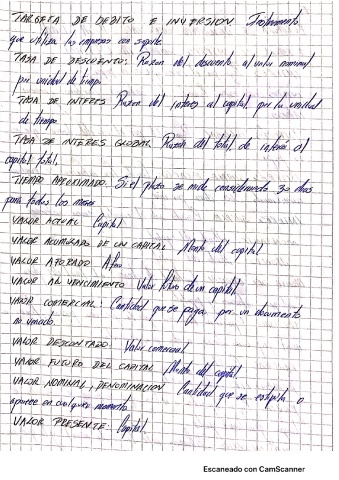 TARGETA DE DEBITO E INVERSION Instrumento
que utiliza las empresas con
TASA DE DESCUENTO: Razon del descuento al valor nominal
por unidad de tiempo.
TASA DE INTERES Razon del interes al capital por la unidad
de tiempo.
TASA DE INTERES GLOBAL Razon del total de interés al
capital total.
TIEMPO APROXIMADO. Si el plazo se mide considerando 30 dias
para todos los meses
VALOR ACTUAL Capital
VALOR ACUMULADO DE UN CAPITAL Monto del capital
VALOR AFORADO
VALOR AL VENCIMIENTO Valor de un capital
VALOR COMERCIAL: Cantidad que se paga por un documento
no vencido.
VALOR DESCONTADO: Valor comercial
VALOR FUTURO DEL CAPITAL Monto del capital.
VALOR NOMINAL, DENOMINACION Cantidad que se estipula o
aparece en cualquier
VALOR PRESENTE: Capital.
Escaneado con CamScanner